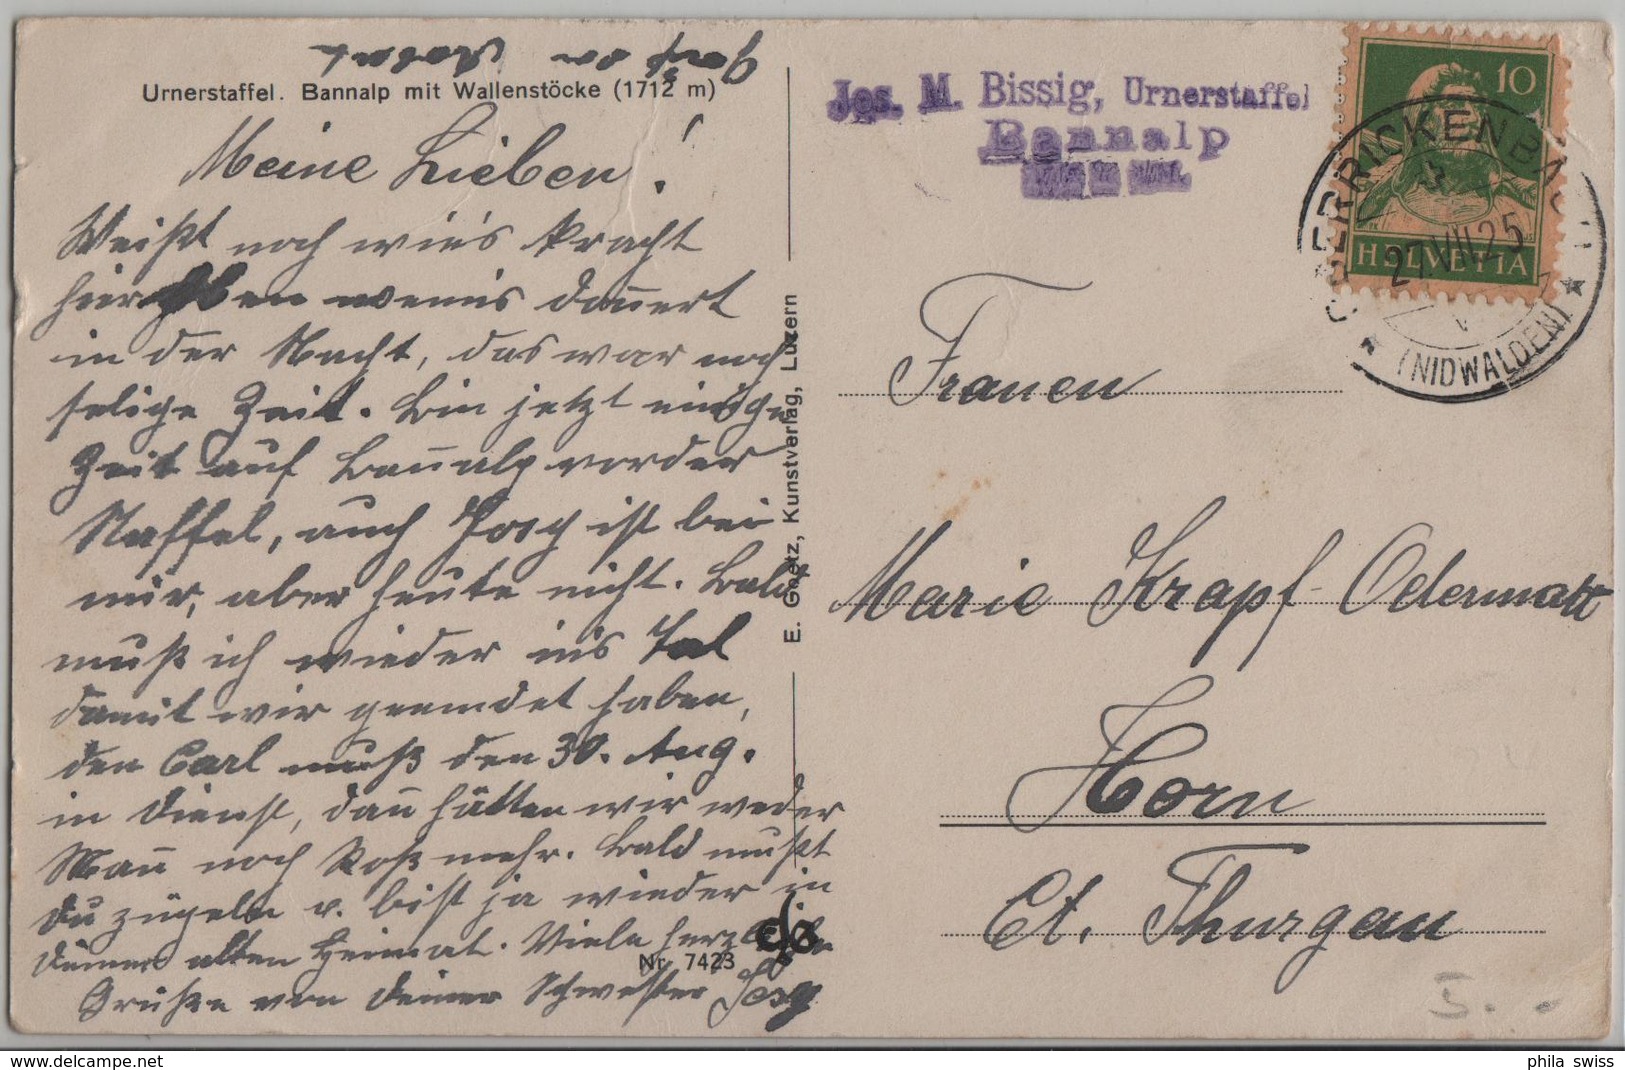 Urnerstaffel. Bannalp mit Wallenstöcke (1712 m)
Meine Lieben!
Weißt noch wie's kracht
hier oben wenn's donnert
in der Nacht, das war noch
selige Zeit. Bin jetzt einige
Zeit auf Bannalp vorder
Staffel, auch Josy ist bei
mir, aber heute nicht. Bald
muß ich wieder ins Tal
damit wir geendet haben,
den Carl muß den 30. Aug.
in Dienst, dan̄ hätten wir weder
Man̄ noch Roß mehr. Bald mußt
Du zügeln u. bist ja wieder in
Deiner alten Heimat. Viele herzliche
Grüße von Deiner Schwester
Nr. 7423
E. Goetz, Kunstverlag, Luzern
Jos. M. Bissig, Urnerstaffel
Bannalp
10
HELVETIA
OBERRICKENBACH
27.VII.25
(NIDWALDEN)
Frauen
Marie Krapf-Odermatt
Horn
Ct. Thurgau
5.-
phila swiss